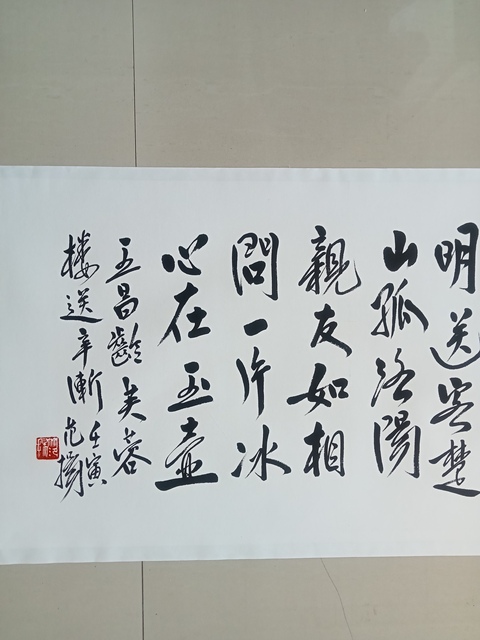 明送客楚
山孤洛陽
親友如相
問一片冰
心在玉壺
王昌齡芙蓉
楼送辛漸
壬寅
范